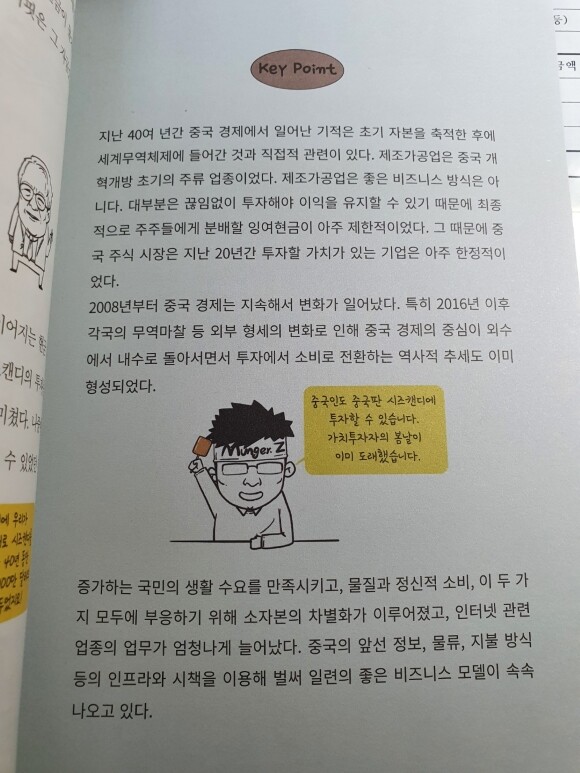 Key Point
지난 40여 년간 중국 경제에서 일어난 기적은 초기 자본을 축적한 후에
세계무역체제에 들어간 것과 직접적 관련이 있다. 제조가공업은 중국 개
혁개방 초기의 주류 업종이었다. 제조가공업은 좋은 비즈니스 방식은 아
니다. 대부분은 끊임없이 투자해야 이익을 유지할 수 있기 때문에 최종
적으로 주주들에게 분배할 잉여현금이 아주 제한적이었다. 그 때문에 중
국 주식 시장은 지난 20년간 투자할 가치가 있는 기업은 아주 한정적이
었다.
2008년부터 중국 경제는 지속해서 변화가 일어났다. 특히 2016년 이후
각국의 무역마찰 등 외부 형세의 변화로 인해 중국 경제의 중심이 외수
에서 내수로 돌아서면서 투자에서 소비로 전환하는 역사적 추세도 이미
형성되었다.
중국인도 중국판 시즈캔디에
투자할 수 있습니다.
가치투자자의 봄날이
이미 도래했습니다.
Munger. Z
증가하는 국민의 생활 수요를 만족시키고, 물질과 정신적 소비, 이 두 가
지 모두에 부응하기 위해 소자본의 차별화가 이루어졌고, 인터넷 관련
업종의 업무가 엄청나게 늘어났다. 중국의 앞선 정보, 물류, 지불 방식
등의 인프라와 시책을 이용해 벌써 일련의 좋은 비즈니스 모델이 속속
나오고 있다.
이어지는
스캔디의
미쳤다.
수 있었던